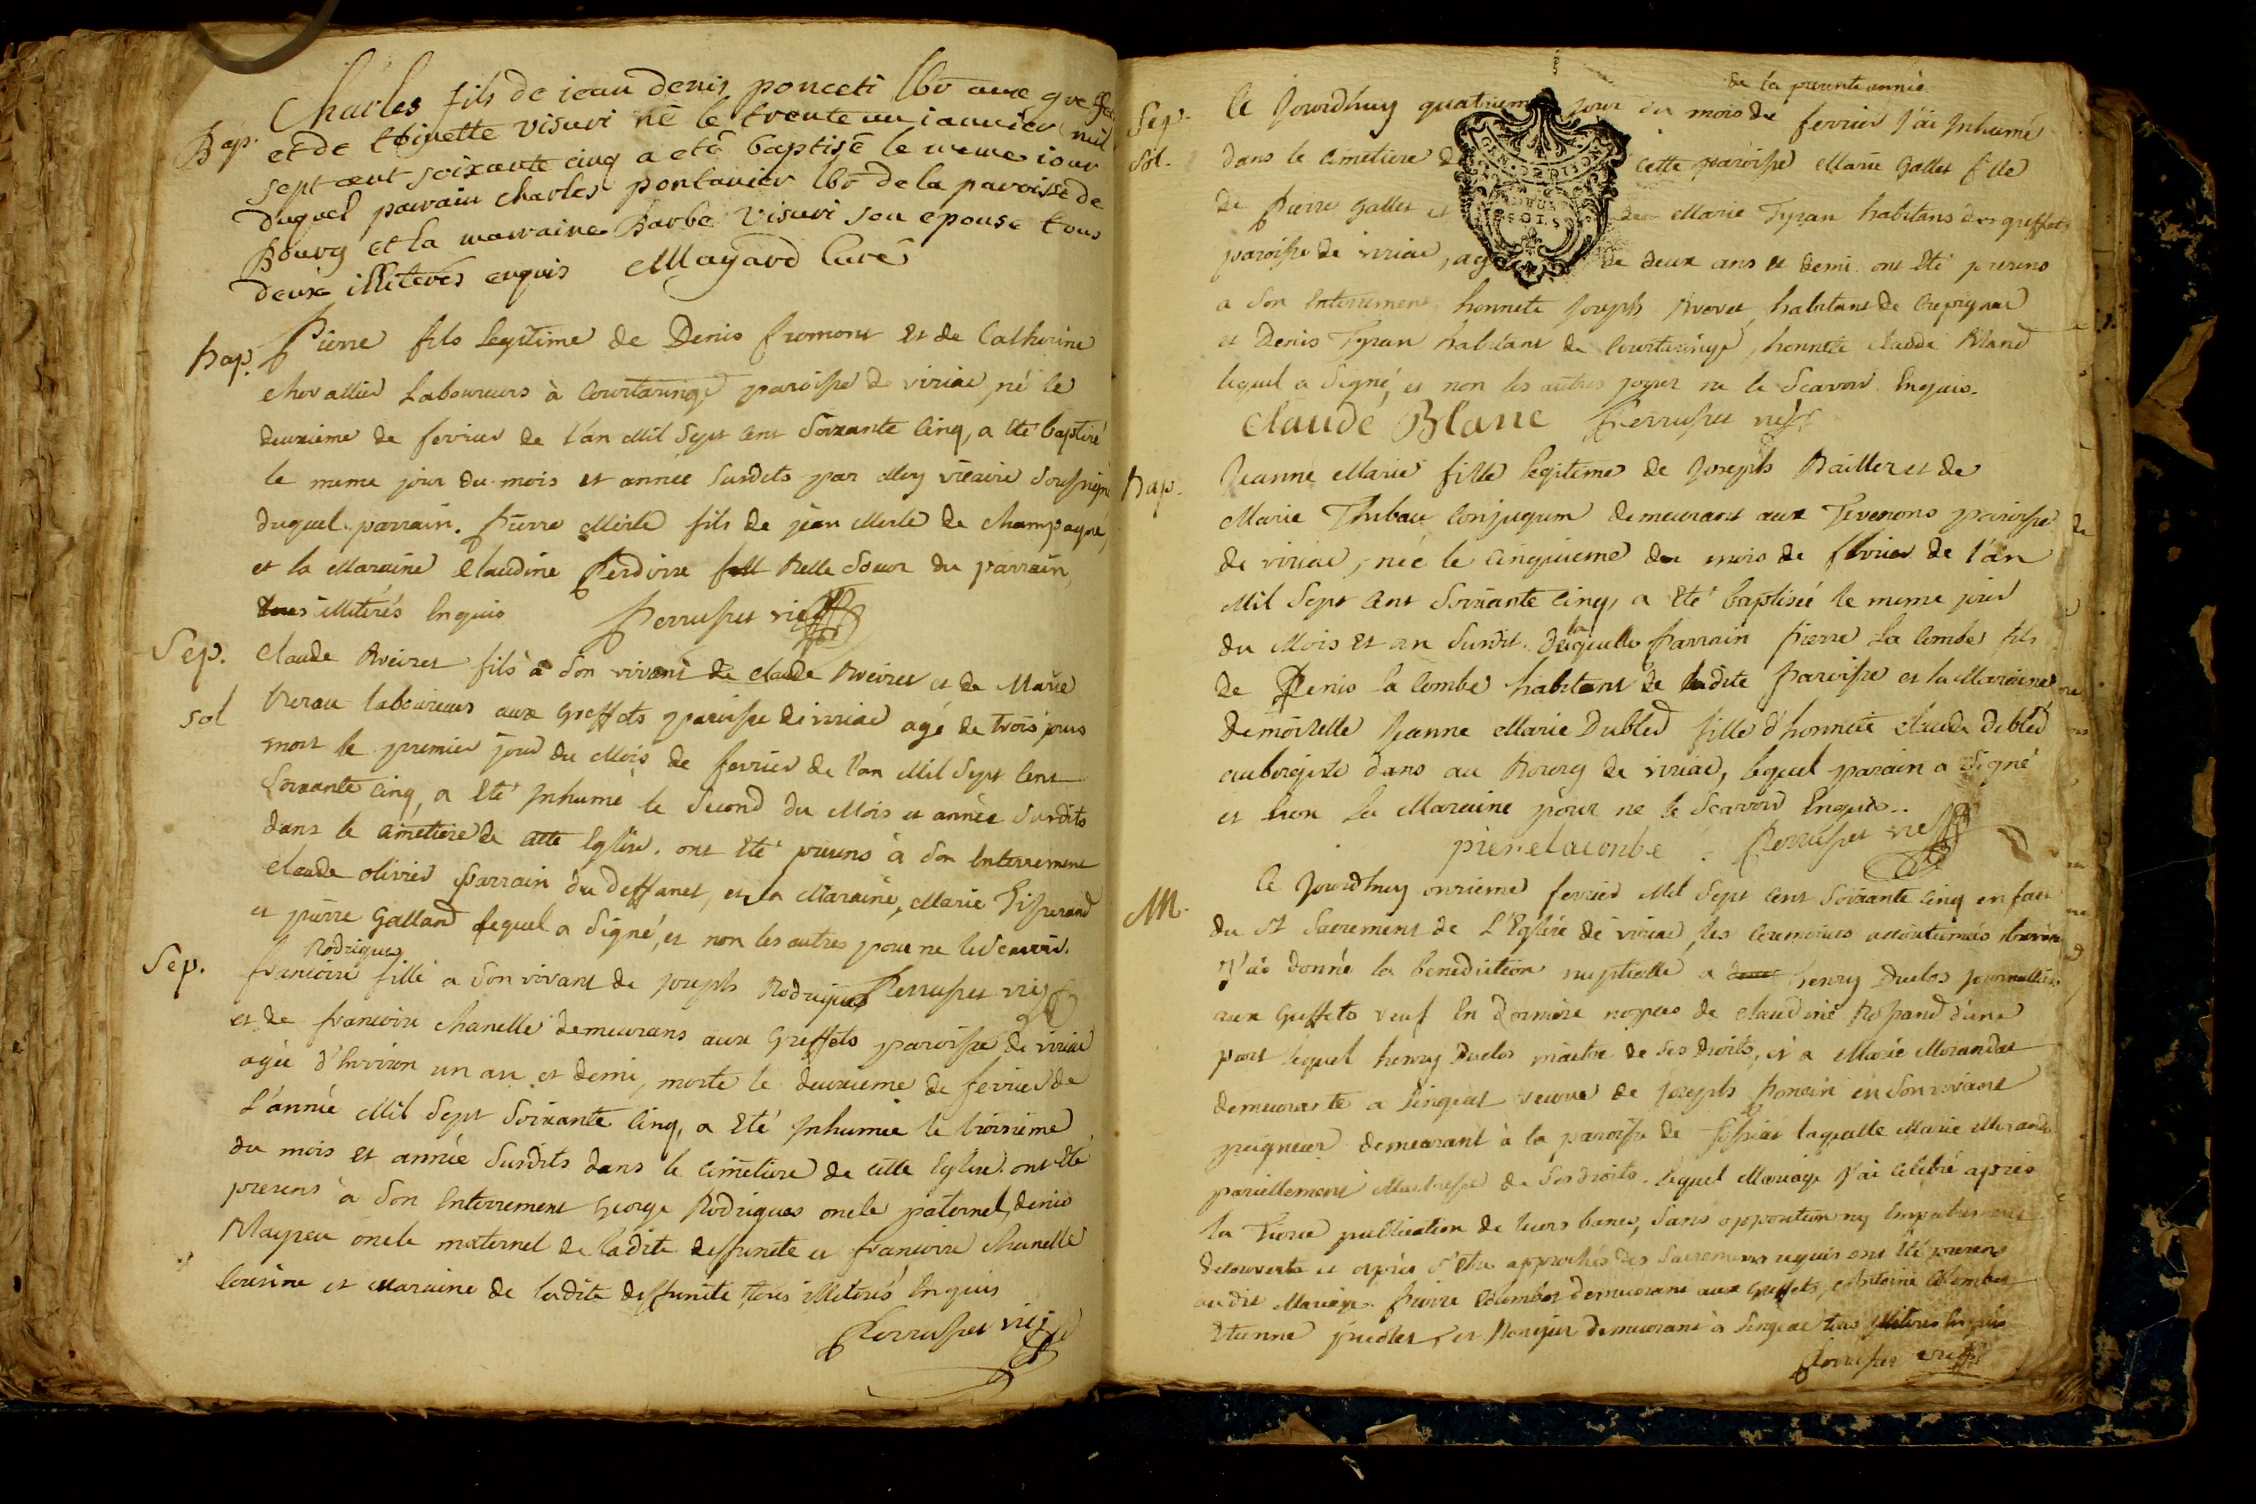 Bap. Charles fils de iean denis ponceti lbo aux greffets
et de thinette visuri né le trente un ianvier mil
sept cent soixante cinq a eté baptisé le meme iour
duquel parain charles pontanier lbo de la paroisse de
Bourg et la maraine Barbe visuri son epouse tous
deux illiterés enquis Mayard Curé
Bap. Pierre fils legitime de Denis fromont et de Catherine
chevallier Laboureurs à Courtaringe paroisse de viriac, né le
deuxieme de fevrier de l'an Mil Sept Cent Soixante Cinq, a eté baptisé
le meme jour du mois et année Susdits par Moy vicaire Soussigné
duquel parrain. Pierre Merle fils de jean Merle de champagne,
et la Maraine Claudine Perdrix Belle Soeur du parrain
tous illiterés Enquis Perruset vic
Sep. Claude Rveiret fils à Son vivant de Claude Rveiret et de Marie
sol Verau laboureurs aux Greffets paroisse de viriac agé de trois jours
mort le premier jour du Mois de fevrier de l'an Mil Sept Cent
Soixante Cinq, a eté Inhumé le Second du Mois et année Susdits
dans le cimetiere de cette Eglise. ont eté presens à Son Enterrement
Claude olivier Parrain du deffunct, et la Maraine, Marie
et pierre Galland lequel a Signé, et non les autres pour ne le Scavoir.
Rodrigues
Sep. francoise fille a Son vivant de joseph Rodrigues Perruset vic
et de francoise chanelle demeurans aux Greffets paroisse de viriac
agée d'Environ un an et demi, morte le deuxieme de fevrier de
L'année Mil Sept Soixante Cinq, a eté Inhumée le troisieme
du mois et année Susdits dans le cimetiere de cette Eglise. ont eté
presens à Son Enterrement George Rodrigues oncle paternel, denis
Maypeu oncle maternel de ladite deffuncte et francoise chanelle
Cousine et Maraine de ladite deffuncte, tous illiterés Enquis
Perruset vic
de la presente année
Sep. Ce Jourdhuy quatrieme jour du mois de fevrier J'ai Inhumé
Sol. dans le Cimetiere de cette paroisse Marie Gallet fille
de Pierre Gallet et de Marie Tyran habitans des greffets
paroisse de viriac, agée de deux ans et demi. ont eté presens
a Son Enterrement honnete Joseph habitant de
et Denis Tyran habitant de Courtaringe, honnete claude Bland
lequel a Signé, et non les autres pour ne le Scavoir Enquis.
Claude Blanc Perruset vic
Bap. Jeanne Marie fille legitime de Joseph Baillet et de
Marie Thibau Conjugum demeurant aux Tevenons paroisse
de viriac, née le Cinquieme du mois de fevrier de l'an
Mil Sept Cent Soixante Cinq, a eté baptisée le meme jour
du Mois et an Susdit. de laquelle Parrain Pierre La Combe fils
de Denis la Combe habitant de ladite Paroisse et la Maraine
demoiselle Jeanne Marie Dubled fille d'honnete Claude Dubled
aubergiste dans au Bourg de viriac, lequel parain a Signé
et non la Maraine pour ne le Scavoir Enquis..
pierelaconbe Perruset vic
M. Ce Jourdhuy onzieme fevrier Mil Sept Cent Soixante Cinq en face
du St Sacrement de L'Eglise de viriac, les Ceremonies accoutumées
J'ai donné la benediction nuptialle a henry Duclos journallier
aux Greffets veuf En derniere nopces de claudine d'une
part lequel henry Duclos maitre de Ses droits, et a Marie Morandat
demeurante a veuve de Joseph en Son vivant
peigneur demeurant à la paroisse de laquelle Marie Morandat
pareillement Maitresse de Ses droits. Lequel Mariage J'ai celebré après
la Tierce publication de leurs bancs, Sans opposition ny Empechement
decouverte et après S'etre approchés des Sacremens requis ont été presens
audit Mariage. Pierre Coumbet demeurant aux Greffets, Antoine Coumbet
Etienne et demeurant à tous illiterés Enquis
Perruset vic